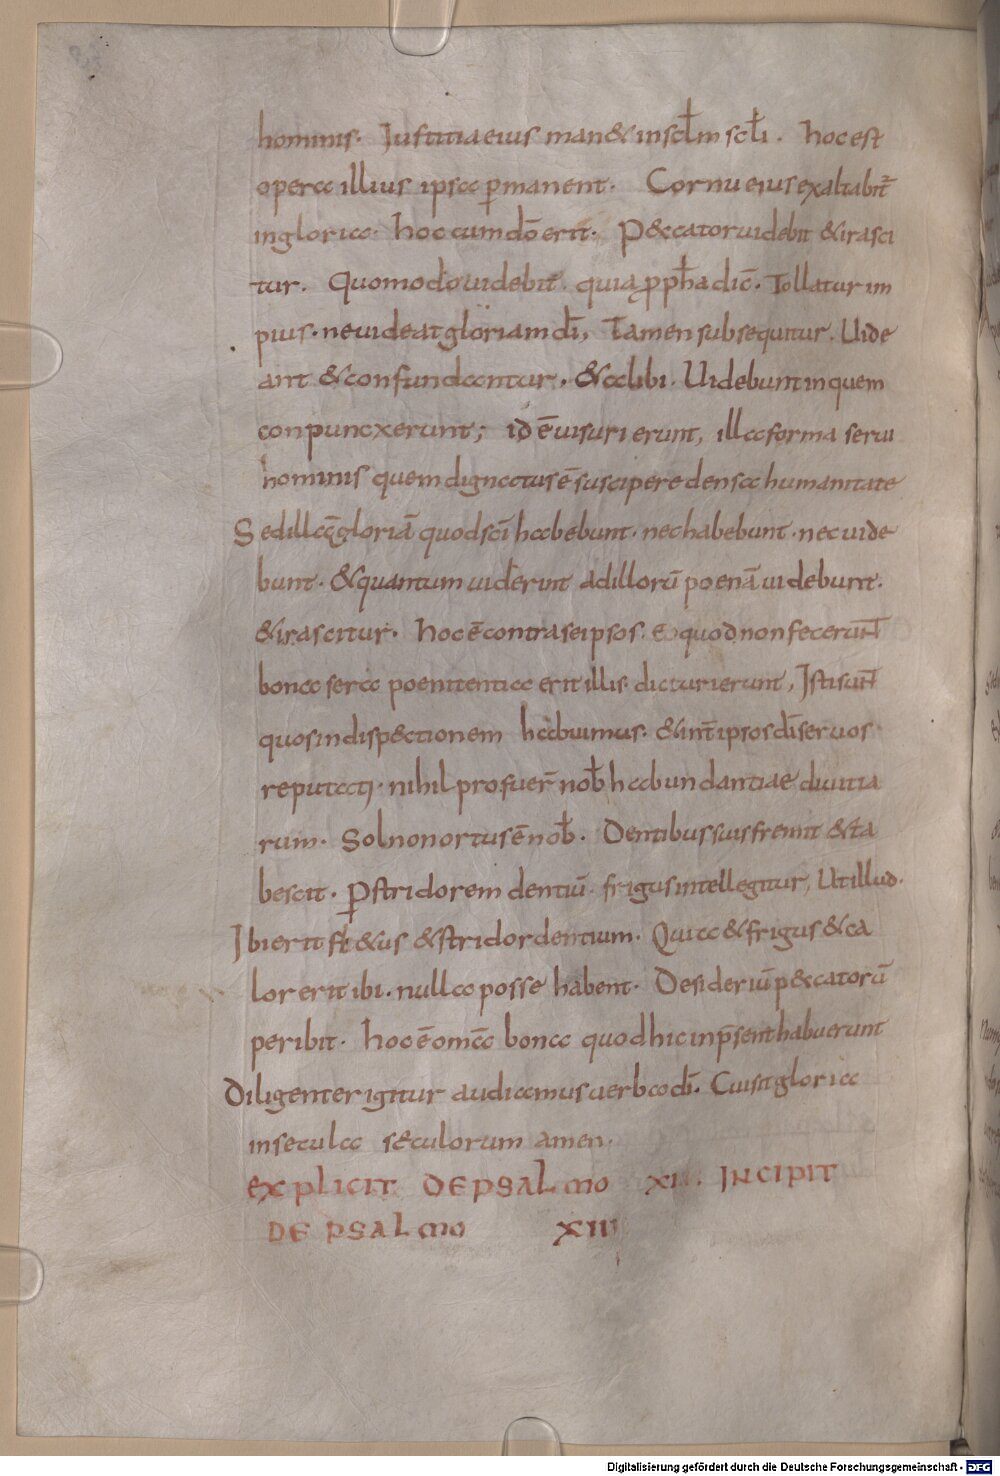 hominis. Justitia eius man& in sclm̄ scłi. hoc est
opera illius ipsa ꝑmanent. Cornu eius exaltabit̄
in gloria. hoc cum dō erit. P&cator uidebit & irasci
tur. Quomodo uidebit. quia ꝓpħa dic̄. Tollatur im
pius. ne uideat gloriam dī, Tamen subsequitur. Uide
ant & confundantur. & alibi. Uidebunt in quem
conpunxerunt; id ē uisuri erunt, illa forma serui
hominis quem dignatus ē suscipere densa humanitate
Sed illā gloriā quod scī habebunt. nec habebunt. nec uide
bunt. & quantum uiderint ad illorū poenā uidebunt.
& irascitur. hoc ē contra se ipsos. eo quod non fecerunt
bona sera poenitentia erit illis dicturi erunt, Isti sunt
quos in disp&ctionem habuimus. & int̄ ipsos dī seruos
reputati. nihil profuer̄ nob̄ habundantiae diuitia
rum. Sol non ortus ē nob̄. Dentibus suis fremit & ta
bescit. ꝑ stridorem dentiū. frigus intellegitur, Ut illud.
Ibi erit fl&us & stridor dentium. Quia & frigus & ca
lor erit ibi. nulla posse habent. Desideriū p&catorū
peribit. hoc ē om̄a bona quod hic in p̄senti habuerunt
Diligenter igitur audiamus uerba dī. Cui sit gloria
in secula seculorum amen.
EXPLICIT DE PSALMO XII. INCIPIT
DE PSALMO XIII
Digitalisierung gefördert durch die Deutsche Forschungsgemeinschaft - DFG